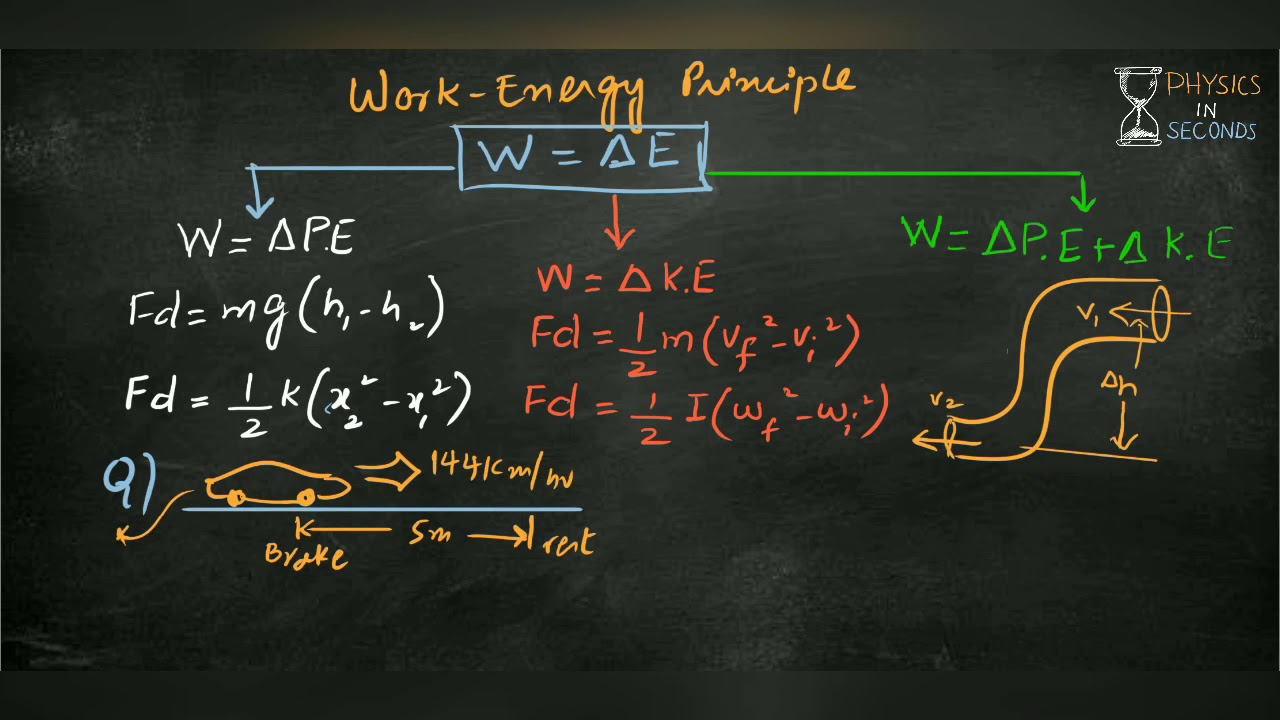 Work-Energy Principle
PHYSICS
IN
SECONDS
W = ΔE
W = ΔP.E
Fd = mg(h₁ - h₂)
Fd = 1/2 k(x₂² - x₁²)
W = ΔK.E
Fd = 1/2 m(v_f² - v_i²)
Fd = 1/2 I(ω_f² - ω_i²)
W = ΔP.E + ΔK.E
v₁
Δh
v₂
Q)
144 km/hr
5m
Brake
rest